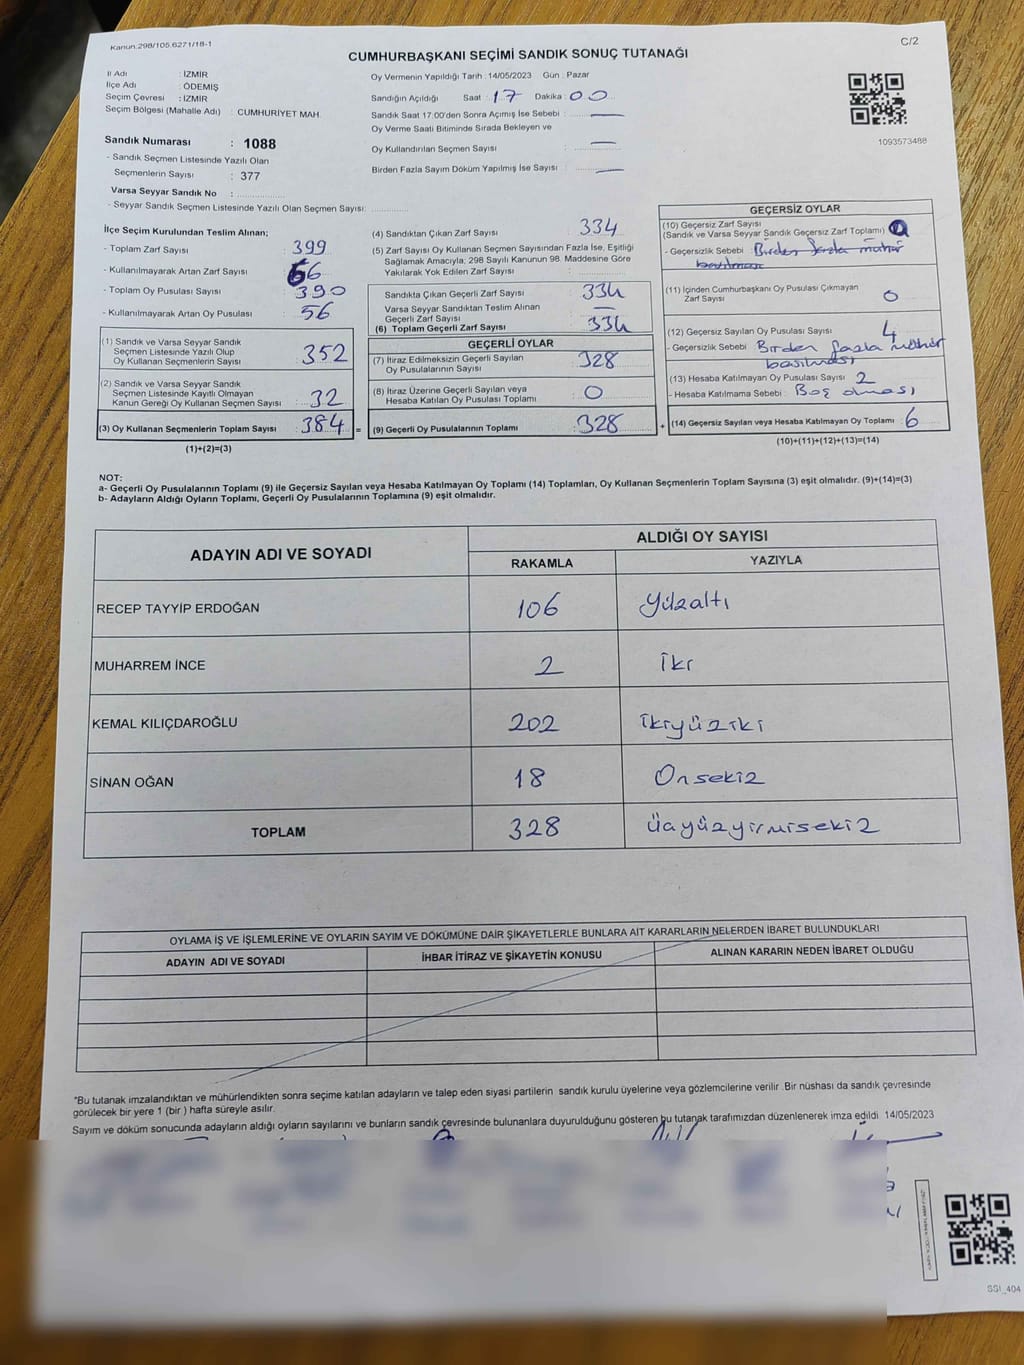 Kanun.298/105.6271/18-1
C/2
CUMHURBAŞKANI SEÇİMİ SANDIK SONUÇ TUTANAĞI
İl Adı : İZMİR
İlçe Adı : ÖDEMİŞ
Seçim Çevresi : İZMİR
Seçim Bölgesi (Mahalle Adı) : CUMHURİYET MAH.
Sandık Numarası : 1088
- Sandık Seçmen Listesinde Yazılı Olan
Seçmenlerin Sayısı : 377
Varsa Seyyar Sandık No :
- Seyyar Sandık Seçmen Listesinde Yazılı Olan Seçmen Sayısı:
Oy Vermenin Yapıldığı Tarih : 14/05/2023 Gün : Pazar
Sandığın Açıldığı Saat : 17 Dakika : 00
Sandık Saat 17.00'den Sonra Açımış İse Sebebi : —
Oy Verme Saati Bitiminde Sırada Bekleyen ve
Oy Kullandırılan Seçmen Sayısı : —
Birden Fazla Sayım Döküm Yapılmış İse Sayısı : —
1093573488
İlçe Seçim Kurulundan Teslim Alınan;
- Toplam Zarf Sayısı : 399
- Kullanılmayarak Artan Zarf Sayısı : 66
- Toplam Oy Pusulası Sayısı : 390
- Kullanılmayarak Artan Oy Pusulası : 56
(1) Sandık ve Varsa Seyyar Sandık
Seçmen Listesinde Yazılı Olup
Oy Kullanan Seçmenlerin Sayısı : 352
(2) Sandık ve Varsa Seyyar Sandık
Seçmen Listesinde Kayıtlı Olmayan
Kanun Gereği Oy Kullanan Seçmen Sayısı : 32
(3) Oy Kullanan Seçmenlerin Toplam Sayısı : 384
(1)+(2)=(3)
(4) Sandıktan Çıkan Zarf Sayısı : 334
(5) Zarf Sayısı Oy Kullanan Seçmen Sayısından Fazla İse, Eşitliği
Sağlamak Amacıyla; 298 Sayılı Kanunun 98. Maddesine Göre
Yakılarak Yok Edilen Zarf Sayısı :
Sandıkta Çıkan Geçerli Zarf Sayısı : 334
Varsa Seyyar Sandıktan Teslim Alınan
Geçerli Zarf Sayısı : —
(6) Toplam Geçerli Zarf Sayısı : 334
GEÇERLİ OYLAR
(7) İtiraz Edilmeksizin Geçerli Sayılan
Oy Pusulalarının Sayısı : 328
(8) İtiraz Üzerine Geçerli Sayılan veya
Hesaba Katılan Oy Pusulası Toplamı : 0
(9) Geçerli Oy Pusulalarının Toplamı : 328
GEÇERSİZ OYLAR
(10) Geçersiz Zarf Sayısı
(Sandık ve Varsa Seyyar Sandık Geçersiz Zarf Toplamı) :
- Geçersizlik Sebebi : Birden fazla mühür
basılması
(11) İçinden Cumhurbaşkanı Oy Pusulası Çıkmayan
Zarf Sayısı : 0
(12) Geçersiz Sayılan Oy Pusulası Sayısı : 4
- Geçersizlik Sebebi : Birden fazla mühür
basılması
(13) Hesaba Katılmayan Oy Pusulası Sayısı : 2
- Hesaba Katılmama Sebebi : Boş olması
(14) Geçersiz Sayılan veya Hesaba Katılmayan Oy Toplamı : 6
(10)+(11)+(12)+(13)=(14)
NOT:
a- Geçerli Oy Pusulalarının Toplamı (9) ile Geçersiz Sayılan veya Hesaba Katılmayan Oy Toplamı (14) Toplamları, Oy Kullanan Seçmenlerin Toplam Sayısına (3) eşit olmalıdır. (9)+(14)=(3)
b- Adayların Aldığı Oyların Toplamı, Geçerli Oy Pusulalarının Toplamına (9) eşit olmalıdır.
ADAYIN ADI VE SOYADI
ALDIĞI OY SAYISI
RAKAMLA YAZIYLA
RECEP TAYYİP ERDOĞAN 106 Yüzaltı
MUHARREM İNCE 2 İki
KEMAL KILIÇDAROĞLU 202 İkiyüziki
SİNAN OĞAN 18 Onsekiz
TOPLAM 328 Üçyüzyirmisekiz
OYLAMA İŞ VE İŞLEMLERİNE VE OYLARIN SAYIM VE DÖKÜMÜNE DAİR ŞİKAYETLERLE BUNLARA AİT KARARLARIN NELERDEN İBARET BULUNDUKLARI
ADAYIN ADI VE SOYADI İHBAR İTİRAZ VE ŞİKAYETİN KONUSU ALINAN KARARIN NEDEN İBARET OLDUĞU
"Bu tutanak imzalandıktan ve mühürlendikten sonra seçime katılan adayların ve talep eden siyasi partilerin sandık kurulu üyelerine veya gözlemcilerine verilir. Bir nüshası da sandık çevresinde
görülecek bir yere 1 (bir) hafta süreyle asılır.
Sayım ve döküm sonucunda adayların aldığı oyların sayılarını ve bunların sandık çevresinde bulunanlara duyurulduğunu gösteren bu tutanak tarafımızdan düzenlenerek imza edildi. 14/05/2023
SSI_404